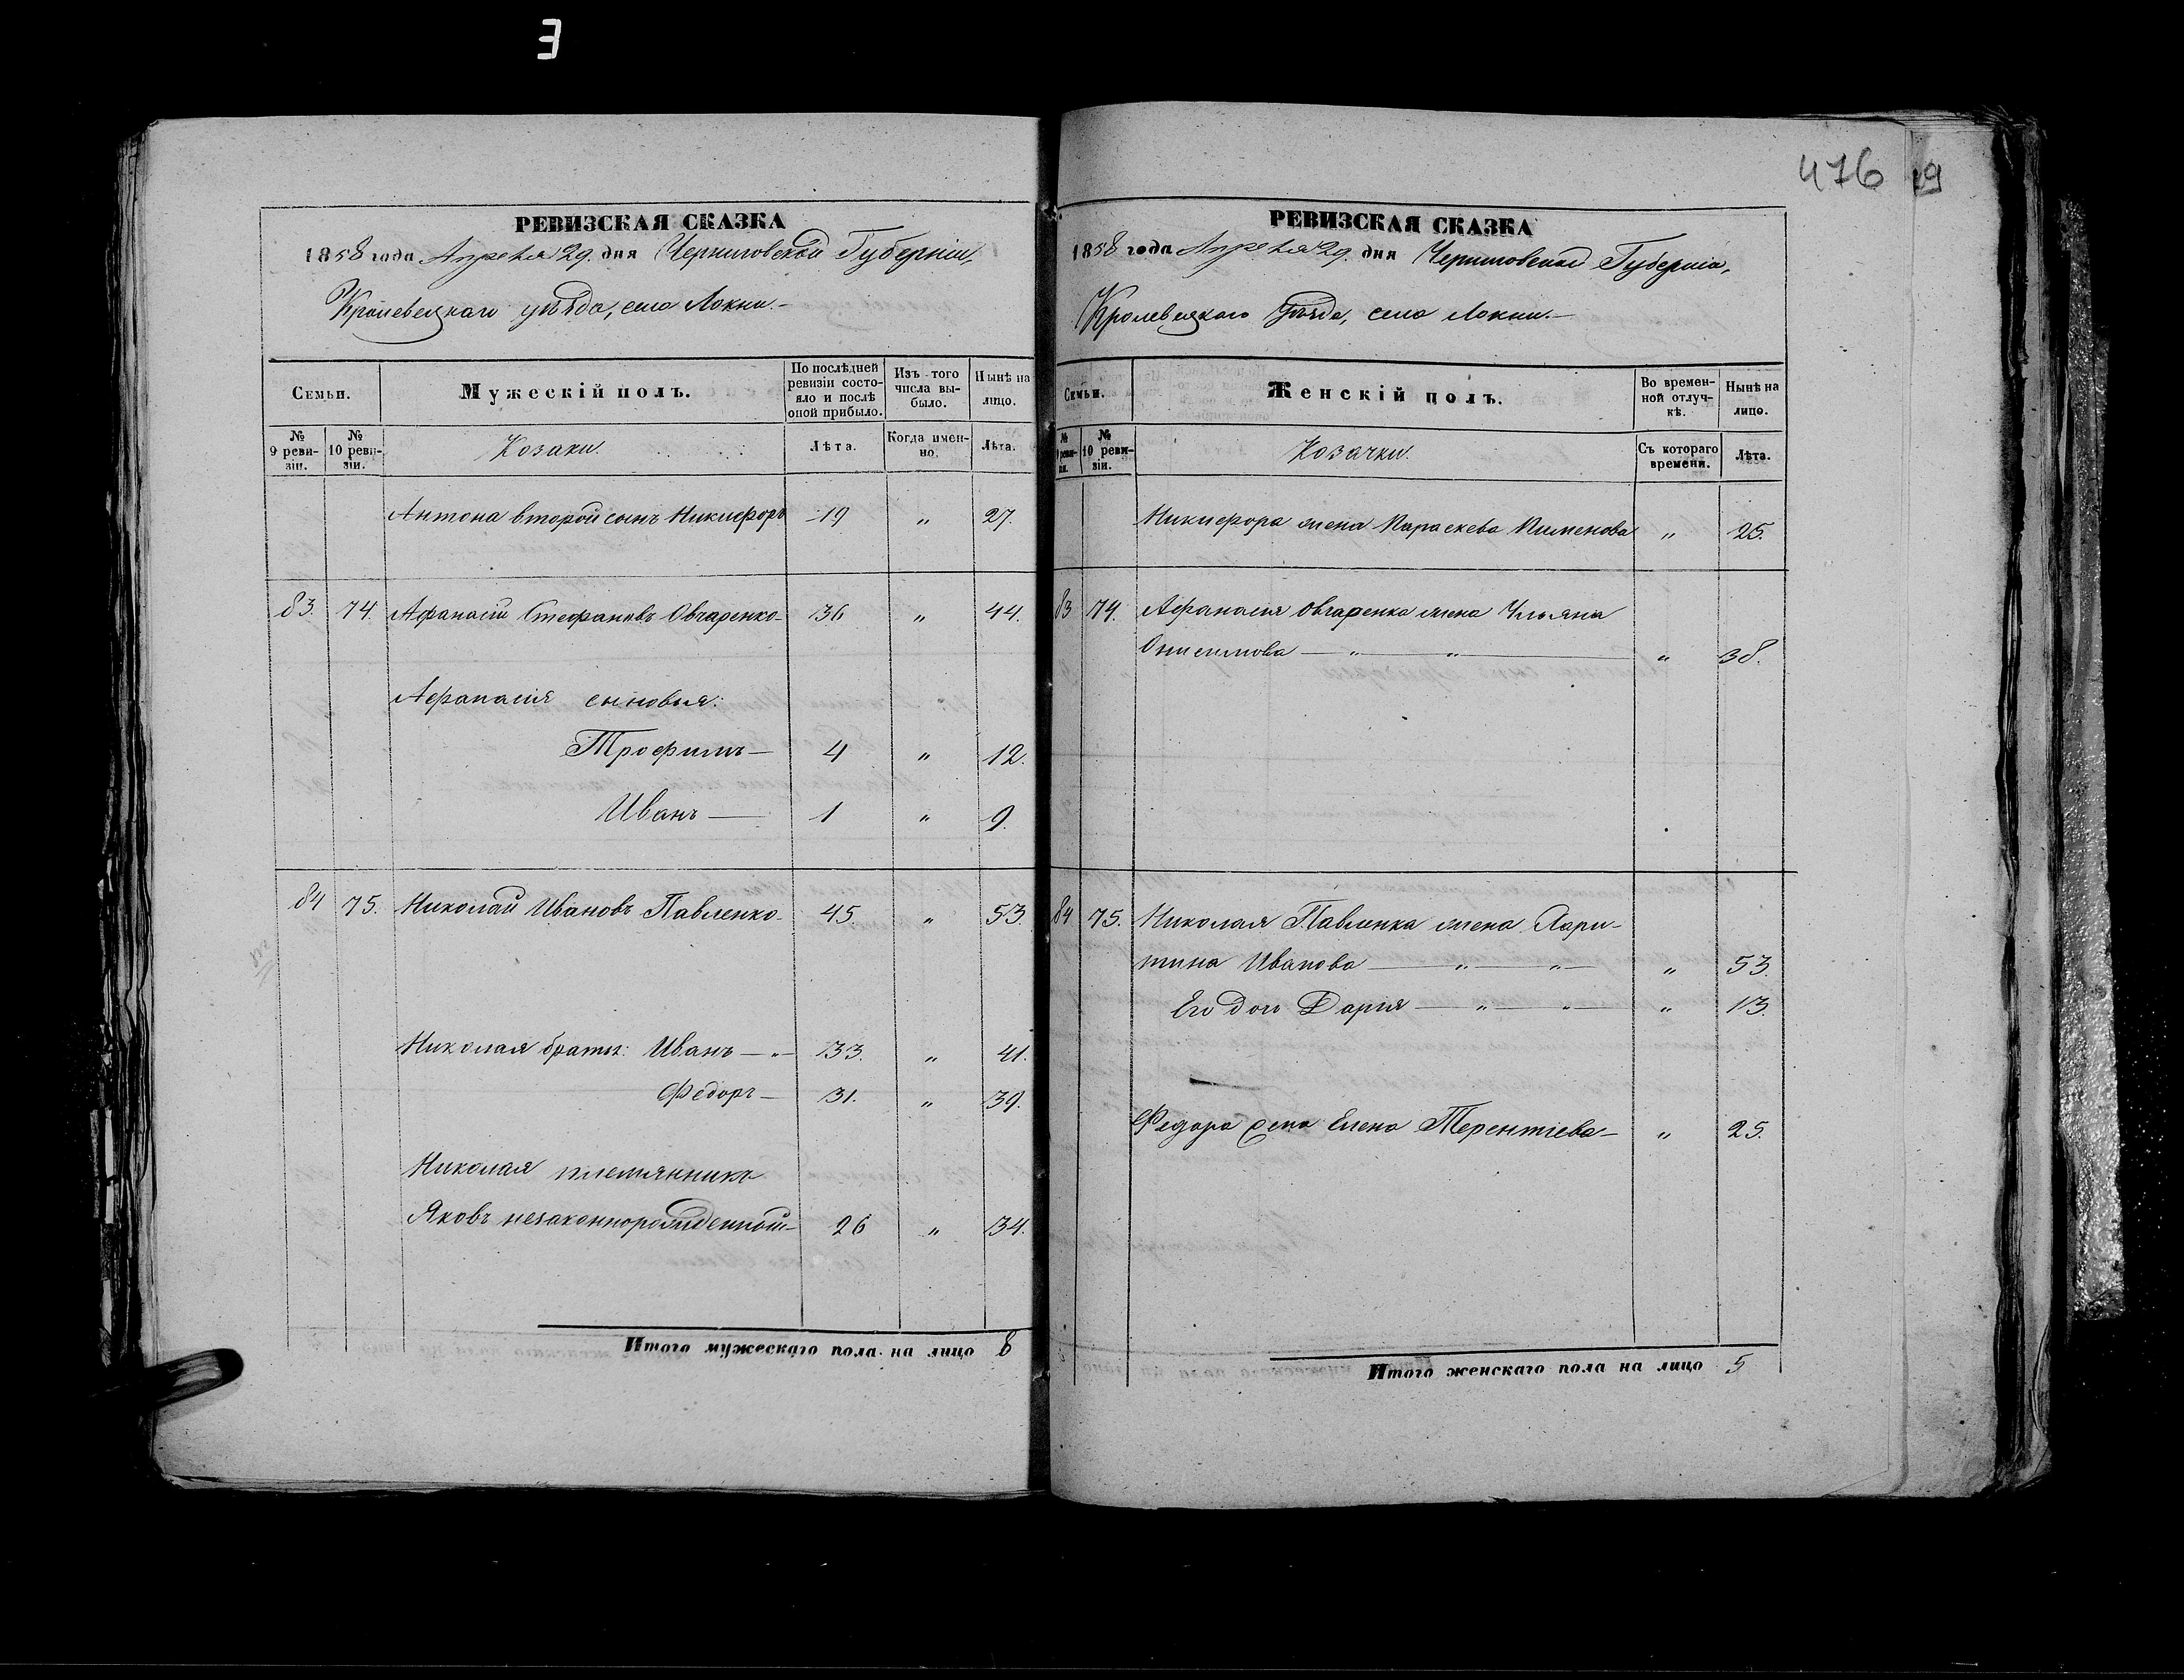 476 19
РЕВИЗСКАЯ СКАЗКА
1858 года Апреля 29. дня Черниговской Губерніи,
Кролевецкаго уѣзда, села Локни.-
Семьи.
Мужескій полъ.
По послѣдней ревизіи состо-
яло и послѣ оной прибыло.
Изъ того числа вы-
было.
Нынѣ на лицо.
№ 9 реви-
зіи.
№ 10 реви-
зіи.
Козаки.
Лѣта.
Когда имен-
но.
Лѣта.
Антона второй сынъ Никифоръ 19 „ 27.
83. 74. Афанасій Стефановъ Овчаренко- 36 „ 44.
Афанасія сыновья:
Трофимъ— 4 „ 12.
Иванъ— 1 „ 9.
84 75. Николай Ивановъ Павленко- 45. „ 53.
Николая братья: Иванъ—„— 33. „ 41.
Федоръ— 31. „ 39.
Николая племянникъ
Яковъ незаконнорожденной- 26 „ 34.
Итого мужескаго пола на лицо 8
РЕВИЗСКАЯ СКАЗКА
1858 года Апреля 29. дня Черниговской Губерніи,
Кролевецкаго Уѣзда, села Локни.—
Семьи.
Женскій полъ.
Во времен-
ной отлуч-
кѣ.
Нынѣ на лицо.
№ 9 реви-
зіи.
№ 10 реви-
зіи.
Козачки.
Съ котораго времени.
Лѣта.
Никифора жена Параскева Пименова „ 25.
83 74. Афанасія Овчаренка жена Ульяна
Онисимова —„—„— „ 38.
84 75. Николая Павленка жена Хари-
тина Иванова —„—„— „ 53.
Его дочь Дарія —„—„— „ 13.
Федора жена Елена Терентіева— „ 25.
Итого женскаго пола на лицо 5